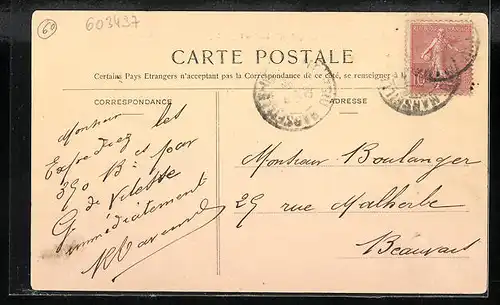 60
603437
CARTE POSTALE
Certains Pays Etrangers n'acceptant pas la Correspondance de ce côté, se renseigner à
CORRESPONDANCE
ADRESSE
MARSEILLE
MARSEILLE
Monsieur
Expédiez les
390 Bls par
G de Vitesse
immédiatement
Monsieur Boulanger
29 rue Malherbe
Beauvais